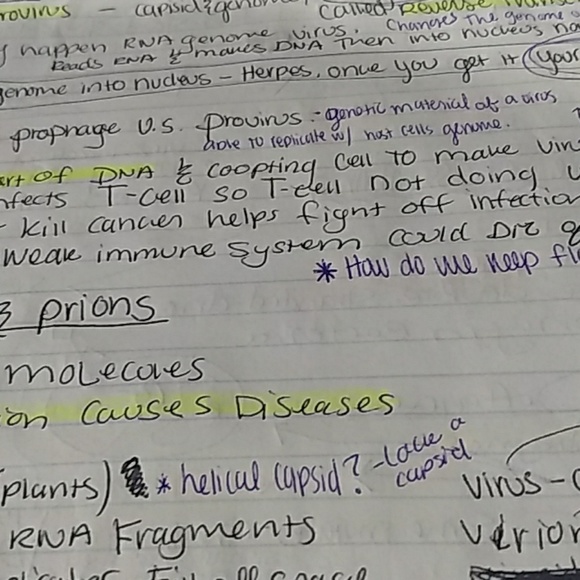 rovirus - capsid & genom Called Reverse Trans
Changes the genome
y happen RNA genome virus.
Reads RNA & makes DNA then into nucleus
genome into nucleus - Herpes, once you get it your
prophage V.S. Provirus - genetic material of a virus
able to replicate w/ host cells genome.
art of DNA & coopting cell to make vir
nfects T-cell so T-cell not doing
kill cancer helps fight off infection
weak immune system could Die
* How do we keep fl
& prions
molecoles
ion Causes Diseases
(plants) * helical capsid? - Lack a
capsid
RNA Fragments
Virus -
Virion